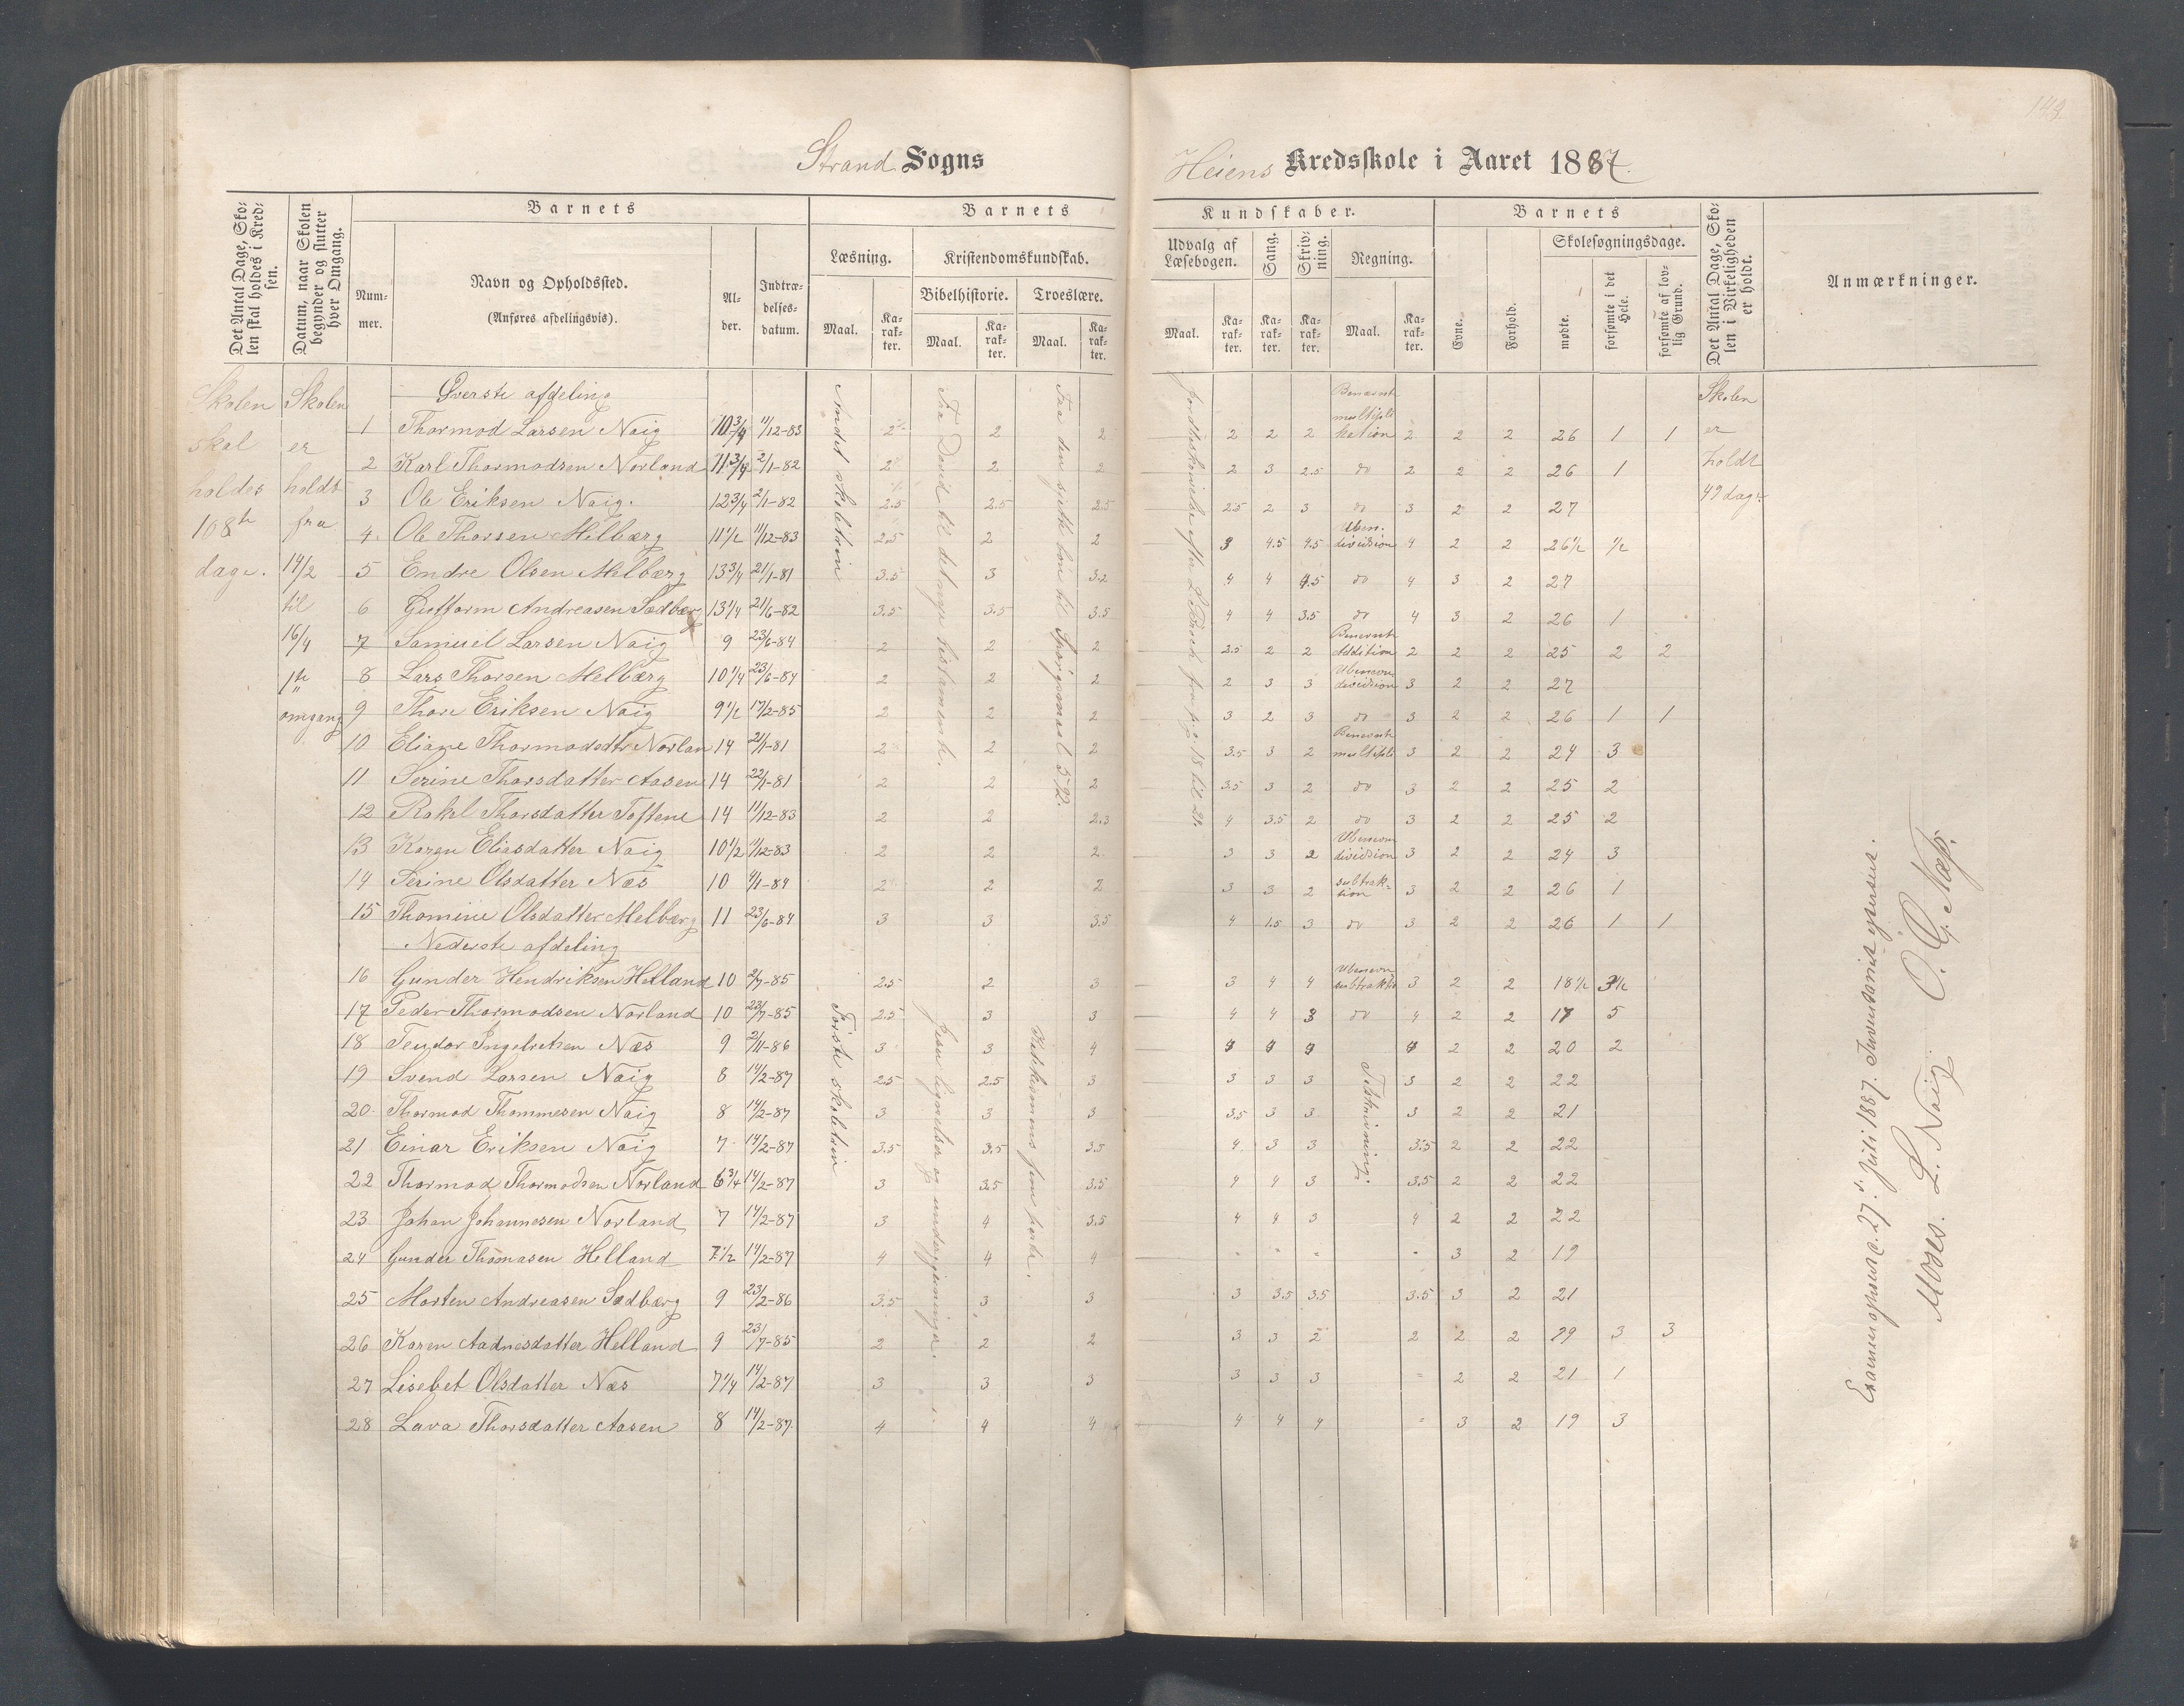 144
Strand Sogns
Heiens Kredsskole i Aaret 1887.
Det Antal Dage, Skolen skal holdes i Kredsen.
Datum, naar Skolen begynder og slutter hver Omgang.
Barnets
Nummer.
Navn og Opholdssted.
(Anføres afdelingsvis).
Alder.
Indtrædelsesdatum.
Barnets
Læsning.
Maal.
Karakter.
Kristendomskundskab.
Bibelhistorie.
Maal.
Karakter.
Troeslære.
Maal.
Karakter.
Kundskaber.
Udvalg af Læsebogen.
Maal.
Karakter.
Sang.
Karakter.
Skrivning.
Karakter.
Regning.
Maal.
Karakter.
Barnets
Evne.
Forhold.
Skolesøgningsdage.
mødte.
forsømte i det Hele.
forsømte af lovlig Grund.
Det Antal Dage, Skolen i Virkeligheden er holdt.
Anmærkninger.
Skolen skal holdes 108 dage.
Skolen er holdt fra 14/2 til 16/4 1ste omgang
Andet skoletrin
Fra David til det nye testamente.
Første skoletrin
Skolen er holdt 49 dage
Øverste afdeling
1 Thormod Larsen Naig 10 3/4 11/12-83 2 2 2 2 2 2 Benævnt multiplikation 2 2 2 26 1 1
2 Karl Thormodsen Norland 11 3/4 2/1-82 2 2 2 2 3 2.5 do 2 2 2 26 1
3 Ole Eriksen Naig. 12 3/4 2/1-82 2.5 2.5 2.5 2.5 2 3 do 3 2 2 27
4 Ole Thorsen Melbærg 11 1/2 11/12-83 2.5 2 2 3 4.5 4.5 Uben. division 4 2 2 26 1/2 1/2
5 Endre Olsen Melbærg 13 3/4 21/1-81 3.5 3 3.2 4 4 4.5 do 4 3 2 27
6 Guttorm Andreasen Sædbærg 13 1/4 21/6-82 3.5 3.5 3.5 4 4 3.5 do 4 3 2 26 1
7 Samuel Larsen Naig 9 23/6-84 2 2 2 2.5 2 2 Benævnt Addition 2 2 2 25 2 2
8 Lars Thorsen Melbærg 10 1/4 23/6-84 2 2 2 2 3 3 Ubenævn division 3 2 2 27
9 Thore Eriksen Naig 9 1/2 17/2-85 2 2 2 3 2 3 do 3 2 2 26 1 1
10 Eliane Thormodsdtr Norlan 14 21/1-81 2 2 2 3.5 3 2 Benævnt multipli 3 2 2 24 3
11 Serine Thorsdatter Aasen 14 22/1-81 2 2 2 3.5 3 2 do 3 2 2 25 2
12 Rakel Thorsdatter Toftene 14 11/12-83 2 2 2.3 4 3.5 2 do 3 2 2 25 2
13 Karen Eliasdatter Naig 10 1/2 11/12-83 2 2 2 3 3 2 Ubenævn division 3 2 2 24 3
14 Serine Olsdatter Næs 10 4/1-84 2 2 2 3 3 2 subtraktion 3 2 2 26 1
15 Thomine Olsdatter Melbærg 11 23/6-84 3 3 3.5 4 1.5 3 do 3 2 2 26 1 1
Nederste afdeling
16 Gunder Hendriksen Helland 10 2/7-85 2.5 2 3 3 4 4 Ubenævn subtraktio 3 2 2 18 1/2 3 1/2
17 Peder Thormodsen Norland 10 23/7-85 2.5 3 3 4 4 3 do 4 2 2 17 5
18 Teodor Ingebretsen Næs 9 2/11-86 3 3 4 4 4 4 4 2 2 20 2
19 Svend Larsen Naig 8 14/2-87 2.5 2.5 3 3 3 3 3 2 2 22
20 Thormod Thommesen Naig 8 14/2-87 3 3 3 3.5 3 3 3 2 2 21
21 Einar Eriksen Naig 7 14/2-87 3.5 3.5 3.5 4 3 3 3.5 2 2 22
22 Thormod Thormodsen Norland 6 3/4 14/2-87 3 3.5 3.5 4 4 3 3.5 2 2 22
23 Johan Johannesen Norland 7 14/2-87 3 4 3.5 4 4 3 4 2 2 22
24 Gunder Thomasen Helland 7 1/2 14/2-87 4 4 4 " " " " 3 2 19
25 Morten Andreasen Sædbærg 9 23/2-86 3.5 3 3 3 3.5 3.5 3.5 3 2 21
26 Karen Aadnesdatter Helland 9 23/7-85 2 2 2 3 3 2 2 2 2 29 3 3
27 Lisebet Olsdatter Næs 7 1/4 14/2-87 3 3 3 3 3 3 " 2 2 21 1
28 Lava Thorsdatter Aasen 8 14/2-87 4 4 4 4 4 4 " 3 2 19 3
Moses. L. Naig. O. G. Næs.